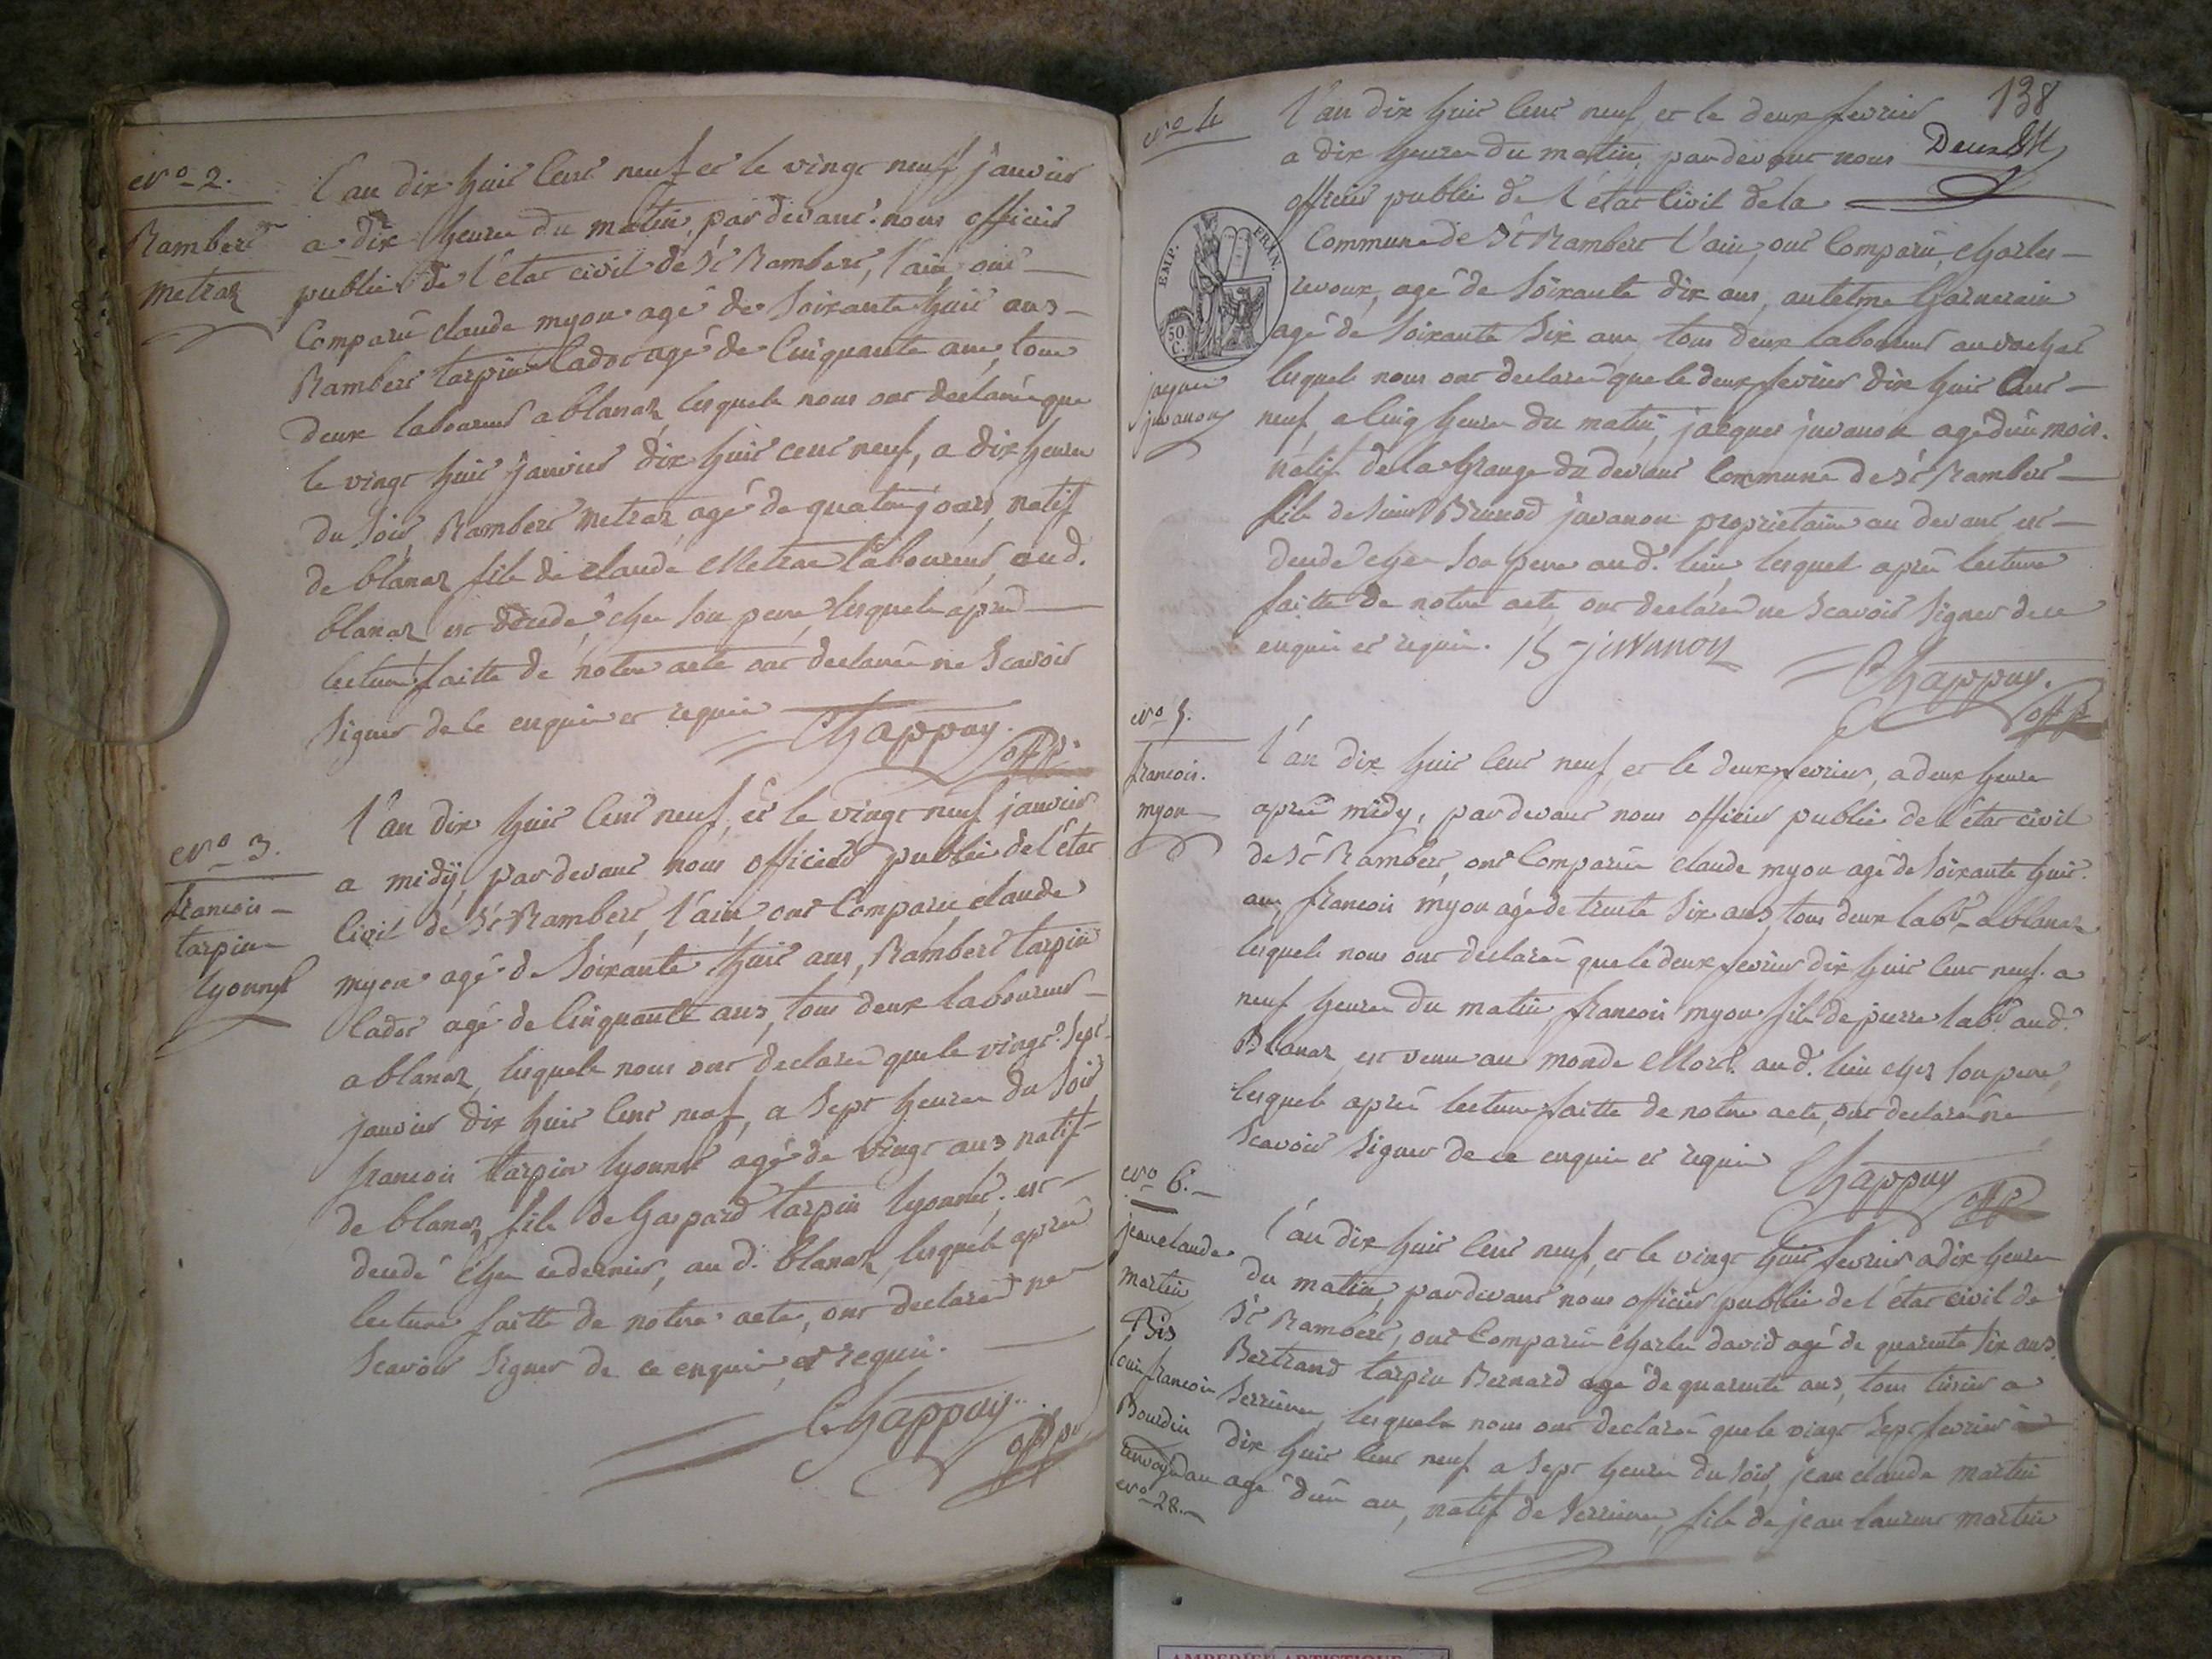 No 2.
Rambert
Metraz
L'an dix huit cent neuf et le vingt neuf janvier
a dix heures du matin, par devant nous officier
public de l'état civil de St Rambert, l'ain, ont
Comparu claude myon agé de soixante huit ans
Rambert tarpin Cadot agé de Cinquante ans, tous
deux laboureurs a blanaz, lesquels nous ont declaré que
le vingt huit janvier dix huit cent neuf, a dix heures
du soir, Rambert Metraz agé de quatre jours, natif
de blanaz fils de claude Metraz laboureur aud.
blanaz est décédé chez son pere, lesquels après
lecture faitte de notre acte ont declaré ne scavoir
signer de ce enquis et requis
Chappuy.
off. p.
No 3.
francois
tarpin
lyonnet
L'an dix huit cent neuf, et le vingt neuf janvier
a midÿ, par devant nous officier public de l'état
Civil de St Rambert, l'ain, ont Comparu claude
myon agé de soixante huit ans, Rambert tarpin
Cadot agé de Cinquante ans, tous deux laboureurs
a blanaz, lesquels nous ont declaré que le vingt sept
janvier dix huit cent neuf, a sept heures du soir
francois tarpin lyonnet agé de vingt ans natif
de blanaz, fils de Gaspard tarpin lyonnet. est
decedé chez ce dernier, au d. blanaz, lesquels après
lecture faitte de notre acte, ont declaré ne
scavoir signer de ce enquis et requis.
Chappuy.
off. p.
138
Deux
No 4
L'an dix huit cent neuf et le deux fevrier
a dix heures du matin, par devant nous
officier public de l'état Civil de la
Commune de St Rambert l'ain, ont Comparu, charles
revoux, agé de soixante dix ans, antelme Garnerain
agé de soixante six ans tous deux laboureurs au vachat
EMP. FRAN.
50 C.
jaques
juvanon
lesquels nous ont declaré que le deux fevrier dix huit cent
neuf, a cinq heures du matin, jacques juvanon agé d'un mois.
natif de la Grange du devant Commune de St Rambert
fils de sieur Brunod juvanon proprietaire au devant est
decedé chez son pere aud. lieu, lesquels après lecture
faitte de notre acte, ont declaré ne scavoir signer de ce
enquis et requis. juvanon
Chappuy.
off. p.
No 5.
francois.
myon
L'an dix huit cent neuf, et le deux fevrier, a deux heures
après midy, par devant nous officier public de l'état civil
de St Rambert, ont Comparu claude myon agé de soixante huit
ans, francois myon agé de trente six ans, tous deux labrs a blanaz
lesquels nous ont declaré que le deux fevrier dix huit cent neuf. a
neuf heures du matin, francois myon fils de pierre labr aud.
Blanaz est venu au monde Mort aud. lieu chez son pere,
lesquels après lecture faitte de notre acte, ont declaré ne
scavoir signer de ce enquis et requis
Chappuy
off. p.
No 6.
jean claude
martin
Bis
Louis francois
Bourdin
renvoyé au
No 28.
L'an dix huit cent neuf, et le vingt huit fevrier a dix heures
du matin, par devant nous officier public de l'état civil de
St Rambert, ont Comparu Charles david agé de quarante six ans,
Bertrand tarpin Bernard agé de quarante ans, tous tisiers a
serrieres, lesquels nous ont declaré que le vingt sept fevrier
dix huit cent neuf a sept heures du soir, jean claude martin
agé d'un an, natif de serrieres, fils de jean laurent martin
AMBERIEU ARTISTIQUE